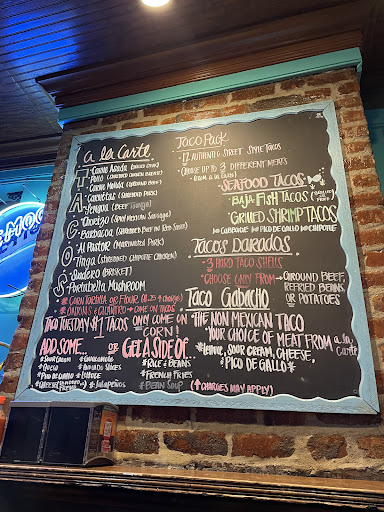 A la Carte
TACOS
*Carne Asada
*Pollo
*Carne Molida (Ground Beef)
*Carnitas (Shredded Pork)
*Lengua (Beef Tongue)
*Chorizo (Spicy Mexican Sausage)
*Barbacoa
*Al Pastor (Marinated Pork)
*Tinga (Shredded Chipotle Chicken)
*Suadero (Brisket)
*Portabella Mushroom
*Corn Tortilla or Flour (1.25 + charge)
*Onions & Cilantro → Come on Tacos
Taco Tuesday $1 Tacos only come on
CORN!
ADD SOME...
*Sour Cream
*Guacamole
*Queso
*Pico de Gallo
*Lettuce
*Cheese
*Jalapeños
or GET A SIDE OF...
*Rice & Beans
*French Fries
*Bean Soup
(↑ Charges May Apply)
Taco Pack
-12 Authentic Street Style Tacos
-Choose up to 3 Different Meats
Seafood Tacos
-Baja Fish Tacos
-Grilled Shrimp Tacos
↳ Cabbage ↳ Pico de Gallo ↳ Chipotle
Tacos Dorados
*3 Hard Taco Shells
*Choose only from → Ground Beef,
Refried Beans
or Potatoes
Taco Gabacho
*The Non Mexican Taco
*Your Choice of Meat from A la Carte
*Lettuce, Sour Cream, Cheese,
*Pico de Gallo*